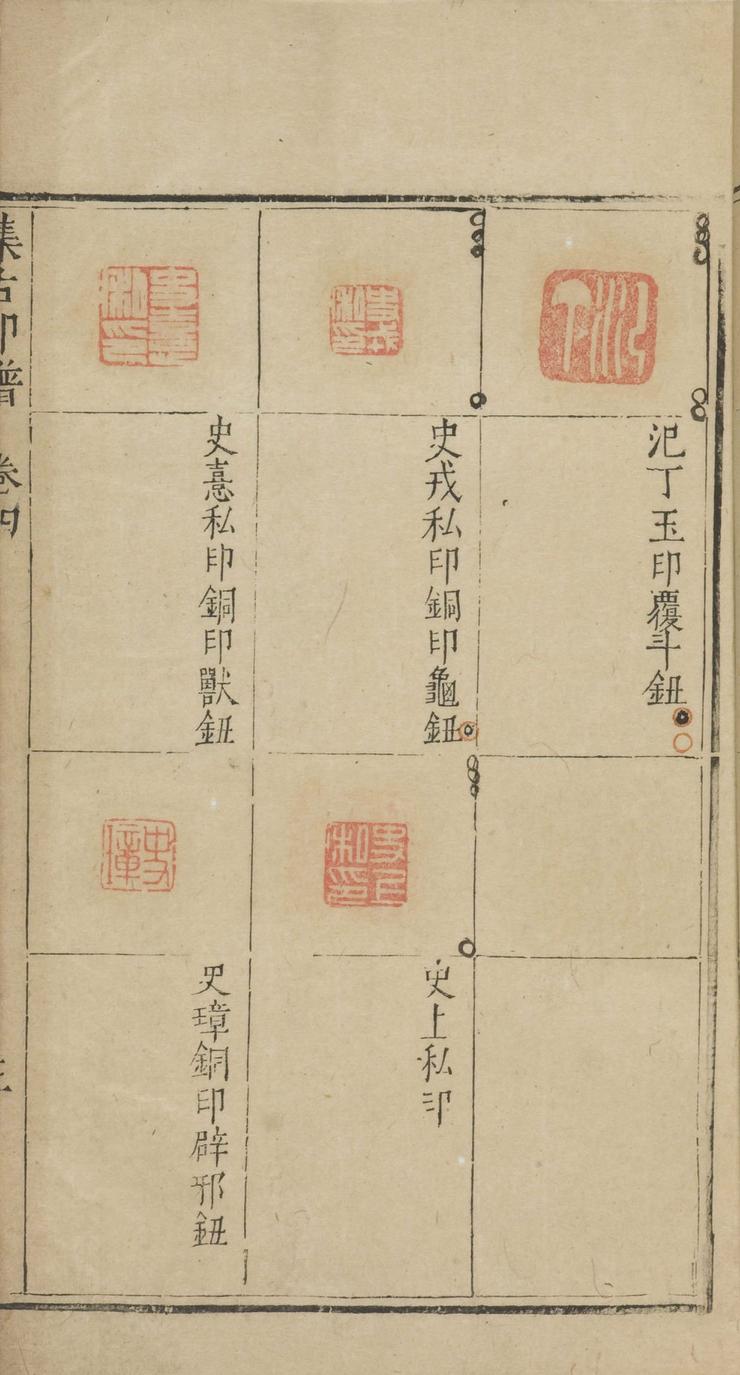 汜丁玉印覆斗鈕
史戎私印銅印龜鈕
史上私印
史憙私印銅印獸鈕
史璋銅印辟邪鈕
集古印譜 卷四